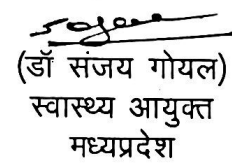 (डॉ संजय गोयल)
स्वास्थ्य आयुक्त
मध्यप्रदेश